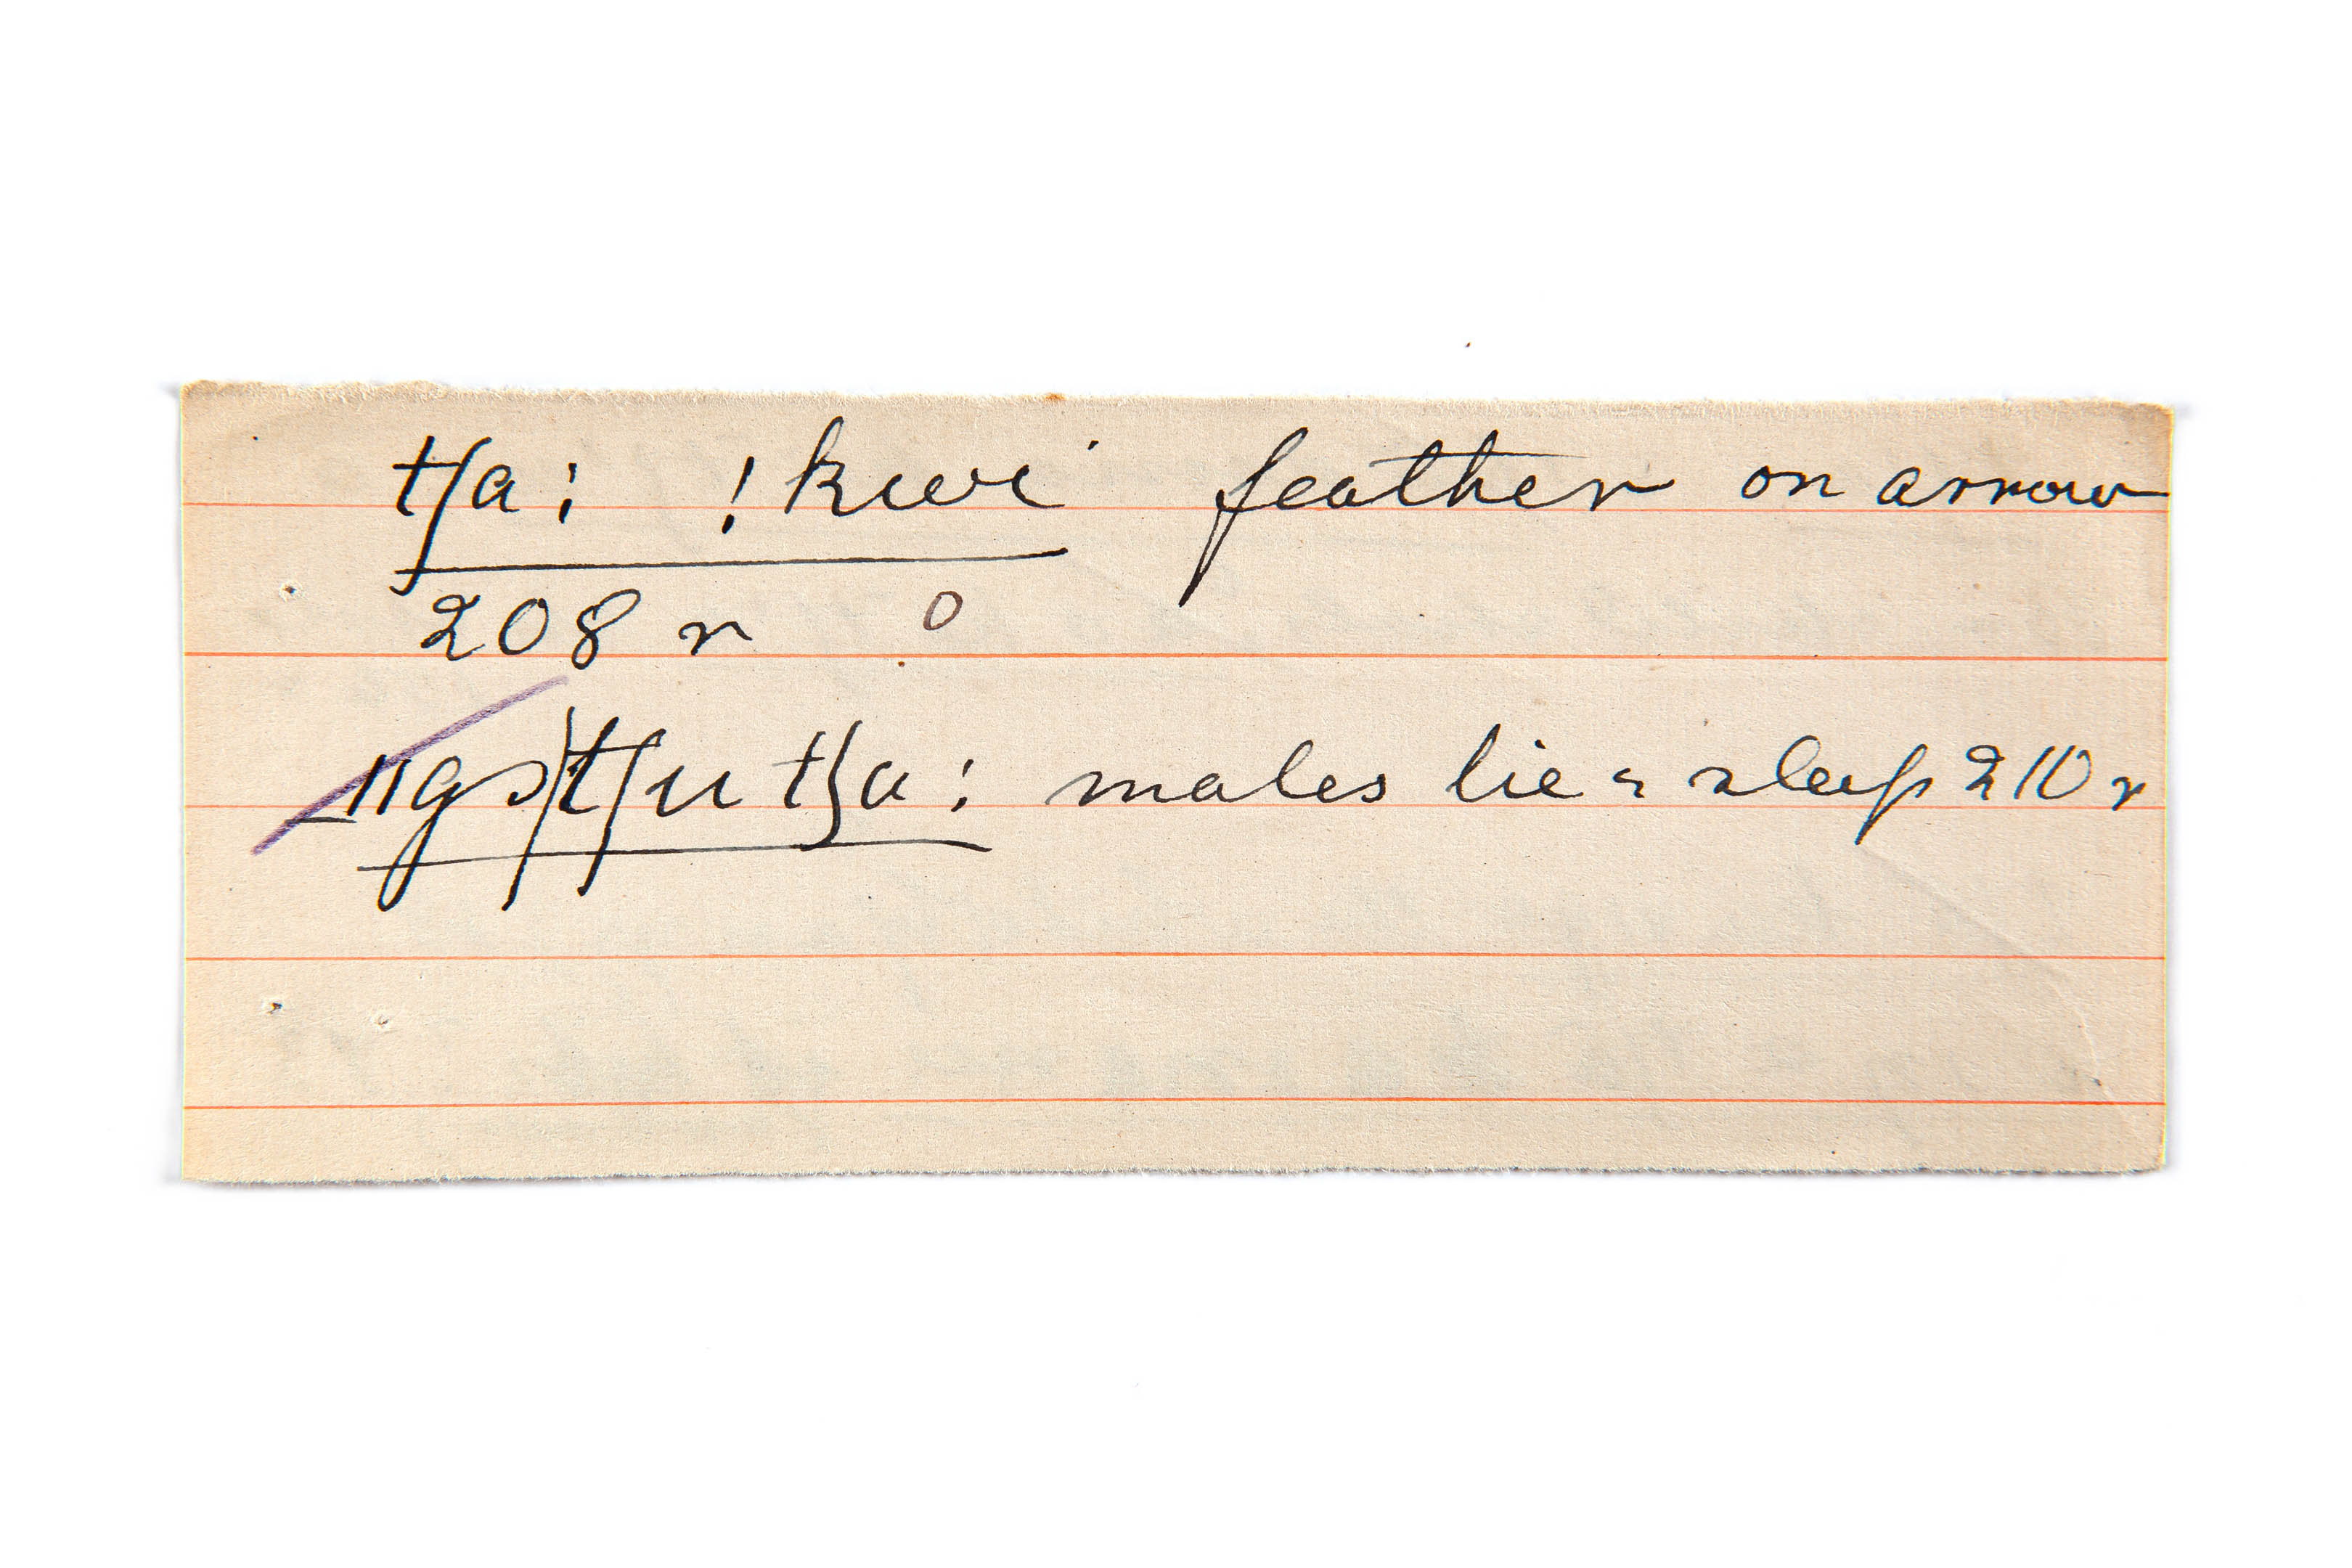 tʃa: !kwi feather on arrow
208 r o
ǁgɔ tʃu tʃa: males lie = sleep 210 r